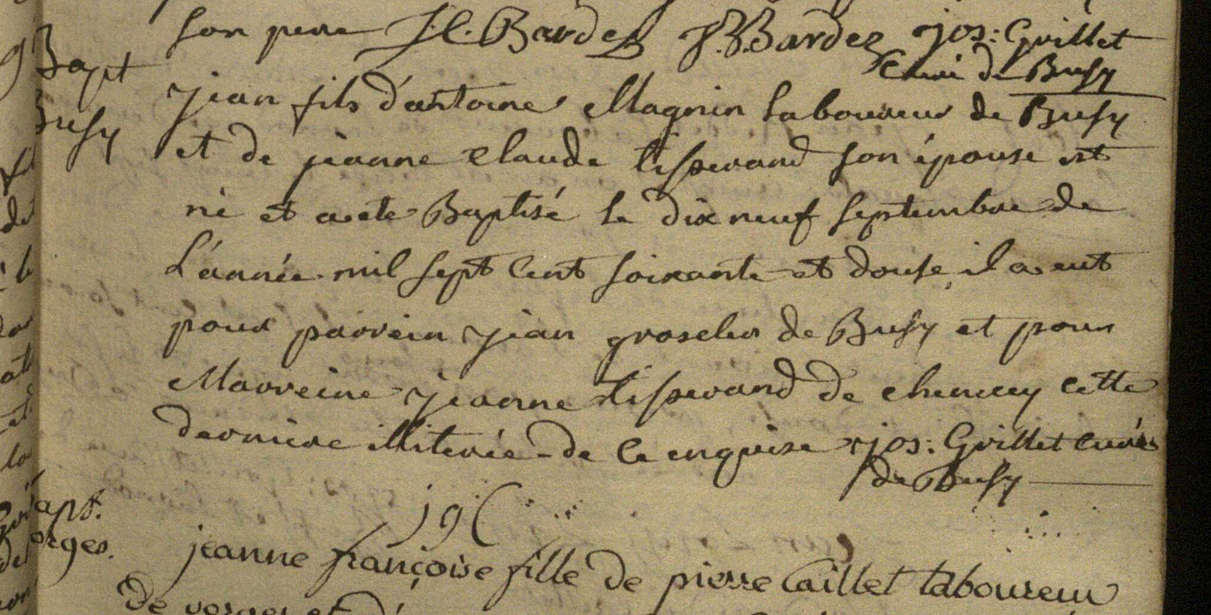 son pere J. C. Bardez J. B. Bardez jos: Gvillet
Curé de Busy
Bapt
Busy
jean fils d'antoine Magnin laboureur de Busy
et de jeanne Claude tisserand son épouse est
né et a eté Baptisé le dix neuf septembre de
L'année mil sept Cent soixante et douse, il a eut
pour parrein jean groselier de Busy et pour
Marreine jeanne tisserand de chenecey cette
derniere illiterée de ce enquise jos: Gvillet curé
de Busy
apt.
orges.
jeanne françoise fille de pierre Caillet laboureur
de vorges et